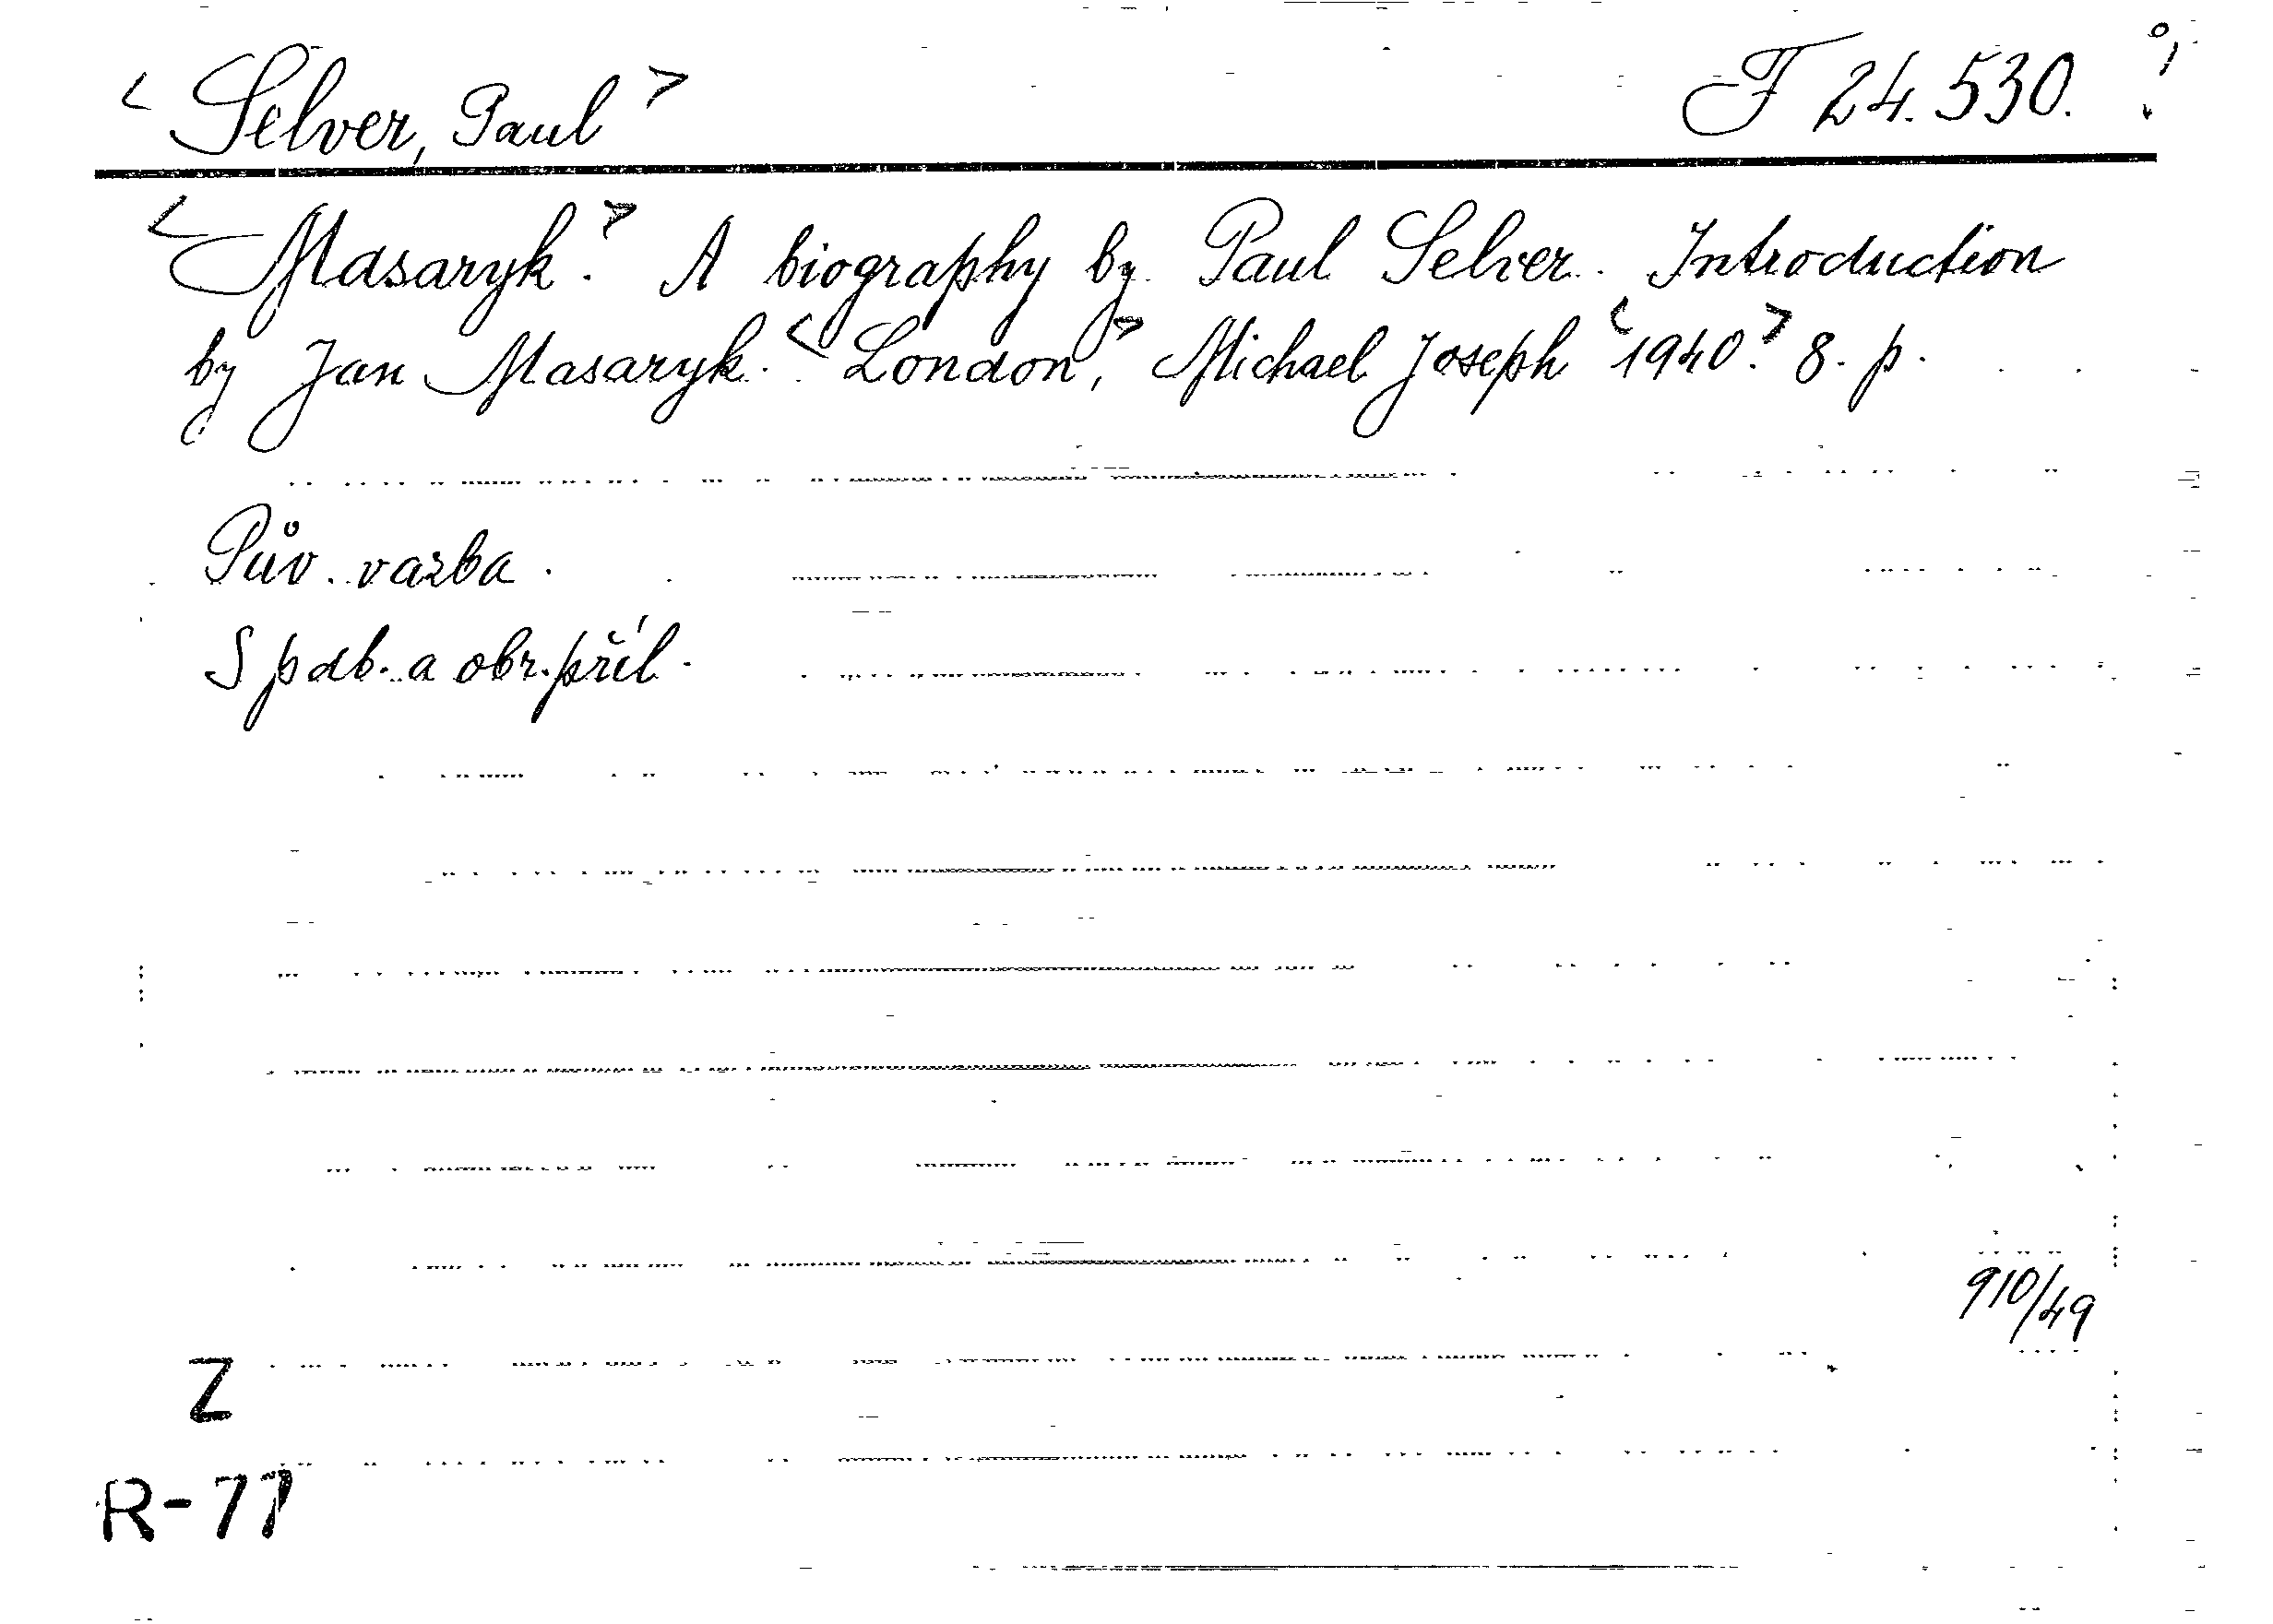 < Selver, Paul > F 24.530.
< Masaryk. > A biography by Paul Selver. Introduction
by Jan Masaryk. < London, > Michael Joseph < 1940. > 8. p.
Pův. vazba.
S pdb. a obr. příl.
910/49
Z
R-77